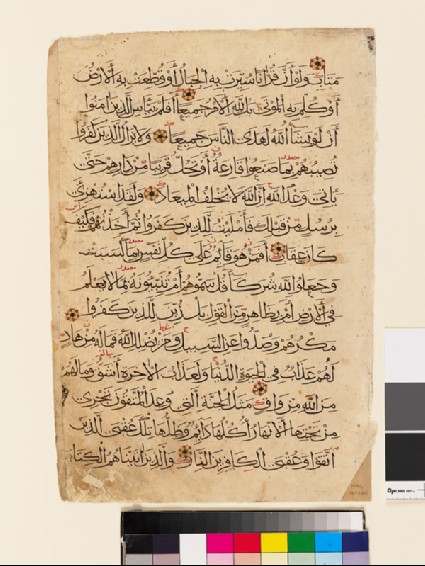 متاب ولو أن قرآنا سيرت به الجبال أو قطعت به الأرض
أو كلم به الموتى بل لله الأمر جميعا أفلم ييأس الذين آمنوا
أن لو يشاء الله لهدى الناس جميعا ولا يزال الذين كفروا
تصيبهم بما صنعوا قارعة أو تحل قريبا من دارهم حتى
يأتي وعد الله إن الله لا يخلف الميعاد ولقد استهزئ
برسل من قبلك فأمليت للذين كفروا ثم أخذتهم فكيف
كان عقاب أفمن هو قائم على كل نفس بما كسبت
وجعلوا لله شركاء قل سموهم أم تنبئونه بما لا يعلم
في الأرض أم بظاهر من القول بل زين للذين كفروا
مكرهم وصدوا عن السبيل ومن يضلل الله فما له من هاد
لهم عذاب في الحيوة الدنيا ولعذاب الآخرة أشق وما لهم
من الله من واق مثل الجنة التي وعد المتقون تجري
من تحتها الأنهار أكلها دائم وظلها تلك عقبى الذين
اتقوا وعقبى الكافرين النار والذين آتيناهم الكتاب